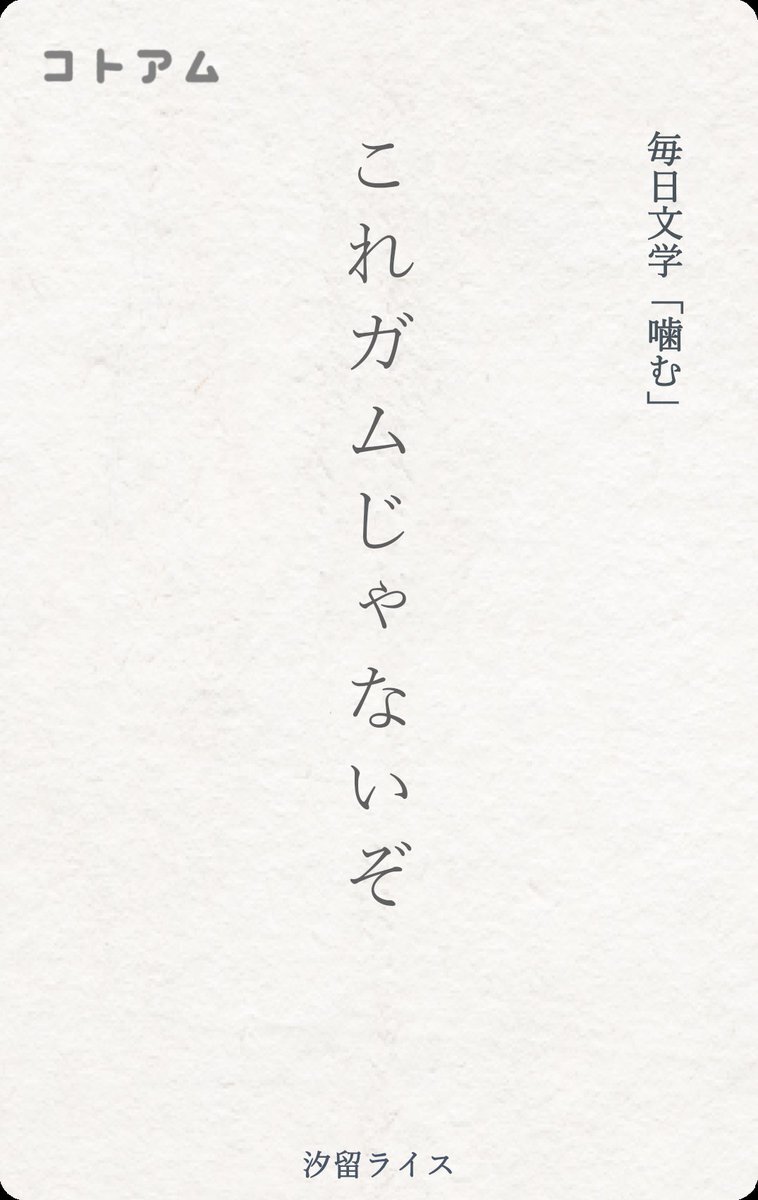 コトアム
毎日文学「噛む」
これガムじゃないぞ
汐留ライス